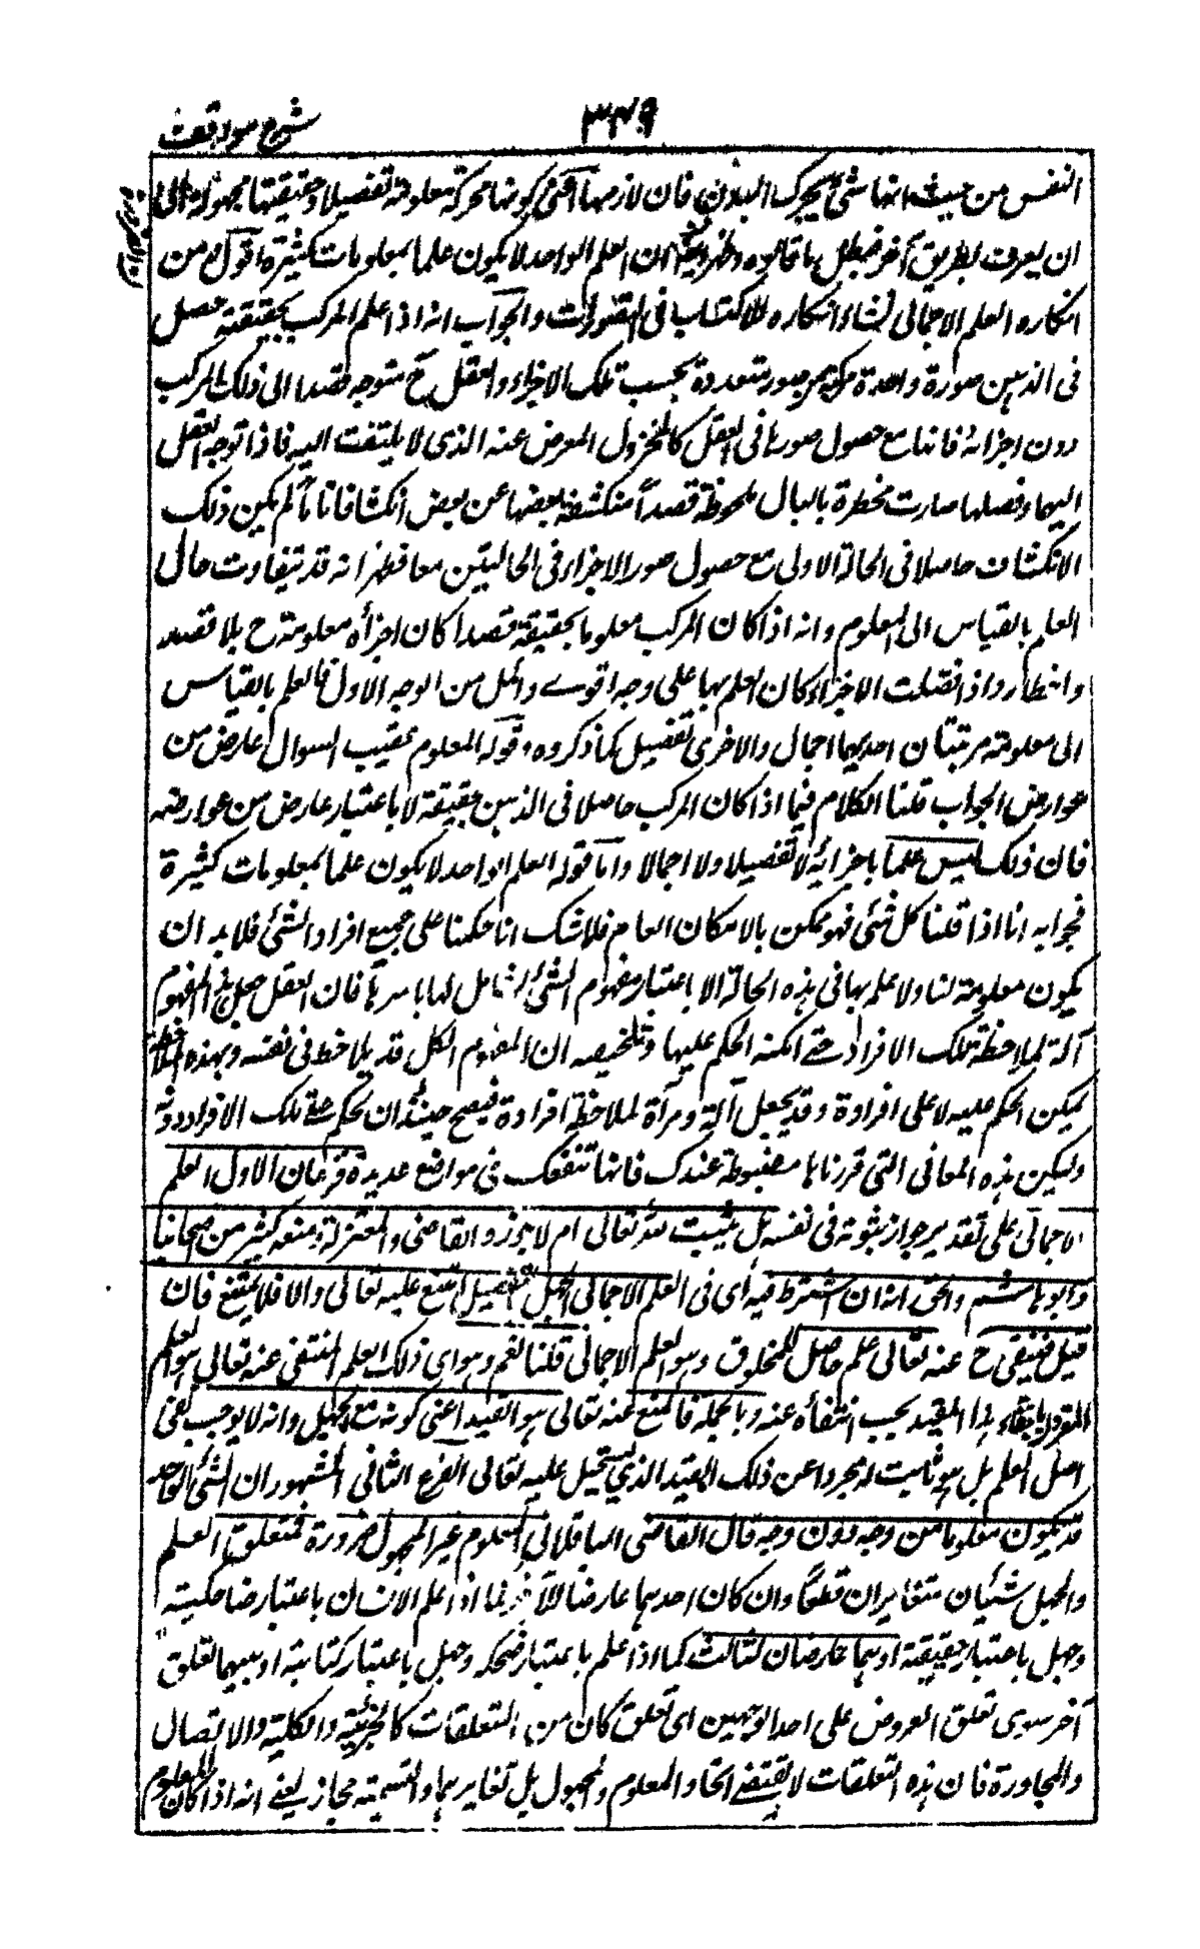 ٣٤٩
شرح مواقف
النفس من حيث انها شئ يحرك البدن فان لازمها اعنى كونها محركة معلومة تفصيلا وحقيقتها مجهولة الى
ان يعرف بطريق آخر فبطل ما قالوه وظهر ان العلم الواحد لا يكون علما بمعلومات كثيرة اقول ومن
انكاره العلم الاجمالى نشاء انكاره للاكتساب فى التصورات والجواب انه اذا علم المركب بحقيقته حصل
فى الذهن صورة واحدة مركبة من صور متعددة بحسب تلك الاجزاء والعقل ح متوجه قصدا الى ذلك المركب
دون اجزائه فانها مع حصول صورها فى العقل كالمخزول المعرض عنه الذى لا يلتفت اليه فاذا توجه العقل
اليها وفصلها صارت مخطرة بالبال ملحوظة قصداً منكشفة بعضها عن بعض انكشافا تاما لم يكن ذلك
الانكشاف حاصلا فى الحالة الاولى مع حصول صور الاجزاء فى الحاليتين معا فظهر انه قد يتفاوت حال
العلم بالقياس الى المعلوم وانه اذا كان المركب معلوما بحقيقته قصدا كان اجزأه معلومة ح بلا قصد
واخطار واذا فصلت الاجزاء كان العلم بها على وجه اقوے واكمل من الوجه الاول فالعلم بالقياس
الى معلومه مرتبتان احدهما اجمال والاخرى تفصيل كما ذكروه وقوله المعلوم عقيب السوال عارض من
عوارض الجواب قلنا الكلام فيما اذا كان المركب حاصلا فى الذهن بحقيقته لا باعتبار عارض من عوارضه
فان ذلك ليس علما باجزائه لا تفصيلا ولا اجمالا واما قوله العلم الواحد لا يكون علما بمعلومات كثيرة
فجوابه انا اذا قلنا كل شئى فهو ممكن بالامكان العام فلا شك انا حكمنا على جميع افراد الشئ فلا بد ان
يكون معلومة لنا ولا علم بها فى هذه الحالة الا باعتبار مفهوم الشئ الشامل لها باسرها فان العقل جعل هذا المفهوم
آلة لملاحظة تلك الافراد حتے امكنه الحكم عليها وتلخيصه ان المفهوم الكلى قد يلاحظ فى نفسه وبهذه الملاحظة
يمكن الحكم عليه لا على افراده وقد يجعل آلة ومرآة لملاحظة افراده فيصح حينئذ ان يحكم على تلك الافراد دونه
وليكن هذه المعانى التى قررناها مضبوطة عندك فانها تنفعك فى مواضع عديدة فرعان الاول العلم
الاجمالى على تقدير جواز ثبوته فى نفسه هل يثبت لله تعالى ام لا جوزه القاضى والمعتزلة ومنعه كثير من اصحابنا
وابو هاشم والحق انه ان اشترط فيه أى فى العلم الاجمالى الجهل بالتفصيل امتنع عليه تعالى والا فلا يمتنع فان
قيل فينتفى ح عنه تعالى علم حاصل للمخلوق وهو العلم الاجمالى قلنا نعم وهو اى ذلك العلم المنتفى عنه تعالى هو العلم
المقرون بالجهل هذا القيد يجب انتفأه عنه وبالجملة فالممتنع عنه تعالى هو القيد اعنى كونه مع الجهل وانه لا يوجب نفى
اصل العلم بل هو ثابت له مجردا عن ذلك القيد الذى يستحيل عليه تعالى الفرع الثانى المشهور ان الشئ الواحد
قد يكون معلوما من وجه دون وجه قال القاضى الباقلانى المعلوم غير المجهول ضرورة فمتعلق العلم
والجهل شئيان متغايران قطعاً وان كان احدهما عارضا للآخر فيما اذا علم الانسان باعتبار ضاحكيته
وجهل باعتبار حقيقته او هما عارضان لثالث كما اذا علم باعتبار ضحكه وجهل باعتبار كتابته او بينهما تعلق
آخر سوى تعلق العروض على احد الوجهين اى تعلق كان من التعلقات كالجزئية والكلية والاتصال
والمجاورة فان هذه التعلقات لا يقتضے اتحاد المعلوم والمجهول بل تغايرهما والتسمية مجاز يعنے انه اذا كان المعلوم